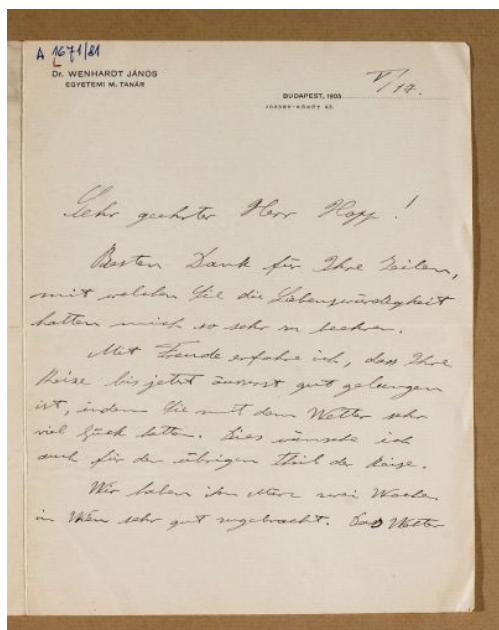 A 1671/81
Dr. WENHARDT JÁNOS
EGYETEMI M. TANÁR
BUDAPEST, 1905 V/17.
JÓZSEF-KÖRÚT 43.
Sehr geehrter Herr Hopp!
Besten Dank für Ihre Zeilen,
mit welchen Sie die Liebenswürdigkeit
hatten mich so sehr zu beehren.
Mit Freude erfahre ich, dass Ihre
Reise bis jetzt äusserst gut gelungen
ist, indem Sie mit dem Wetter sehr
viel Glück hatten. Dies wünsche ich
auch für den übrigen Theil der Reise.
Wir haben im März zwei Wochen
in Wien sehr gut zugebracht. Das Wetter